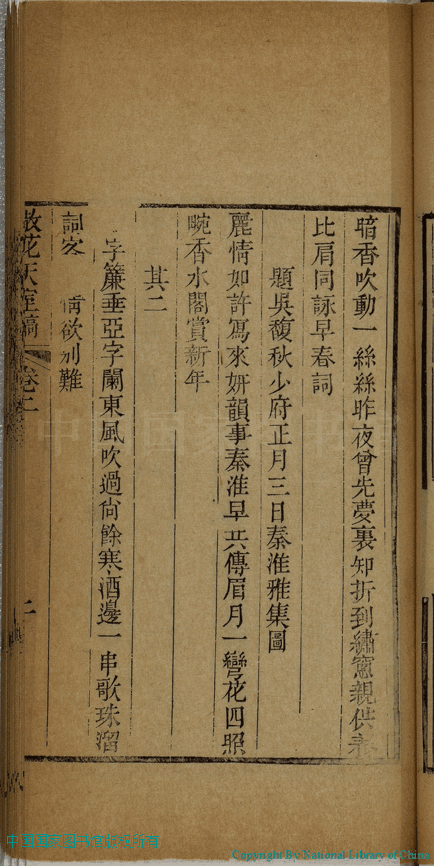 暗香吹動一絲絲昨夜曾先夢裏知折到繡窻親供養
比肩同詠早春詞
題吳馥秋少府正月三日秦淮雅集圖
麗情如許寫來妍韻事秦淮早共傳眉月一彎花四照
畹香水閣賞新年
其二
字簾垂亞字闌東風吹過尙餘寒酒邊一串歌珠溜
詞客 情欲別難
散花天室稿 卷二 二
中国国家图书馆版权所有
Copyright By National Library of China